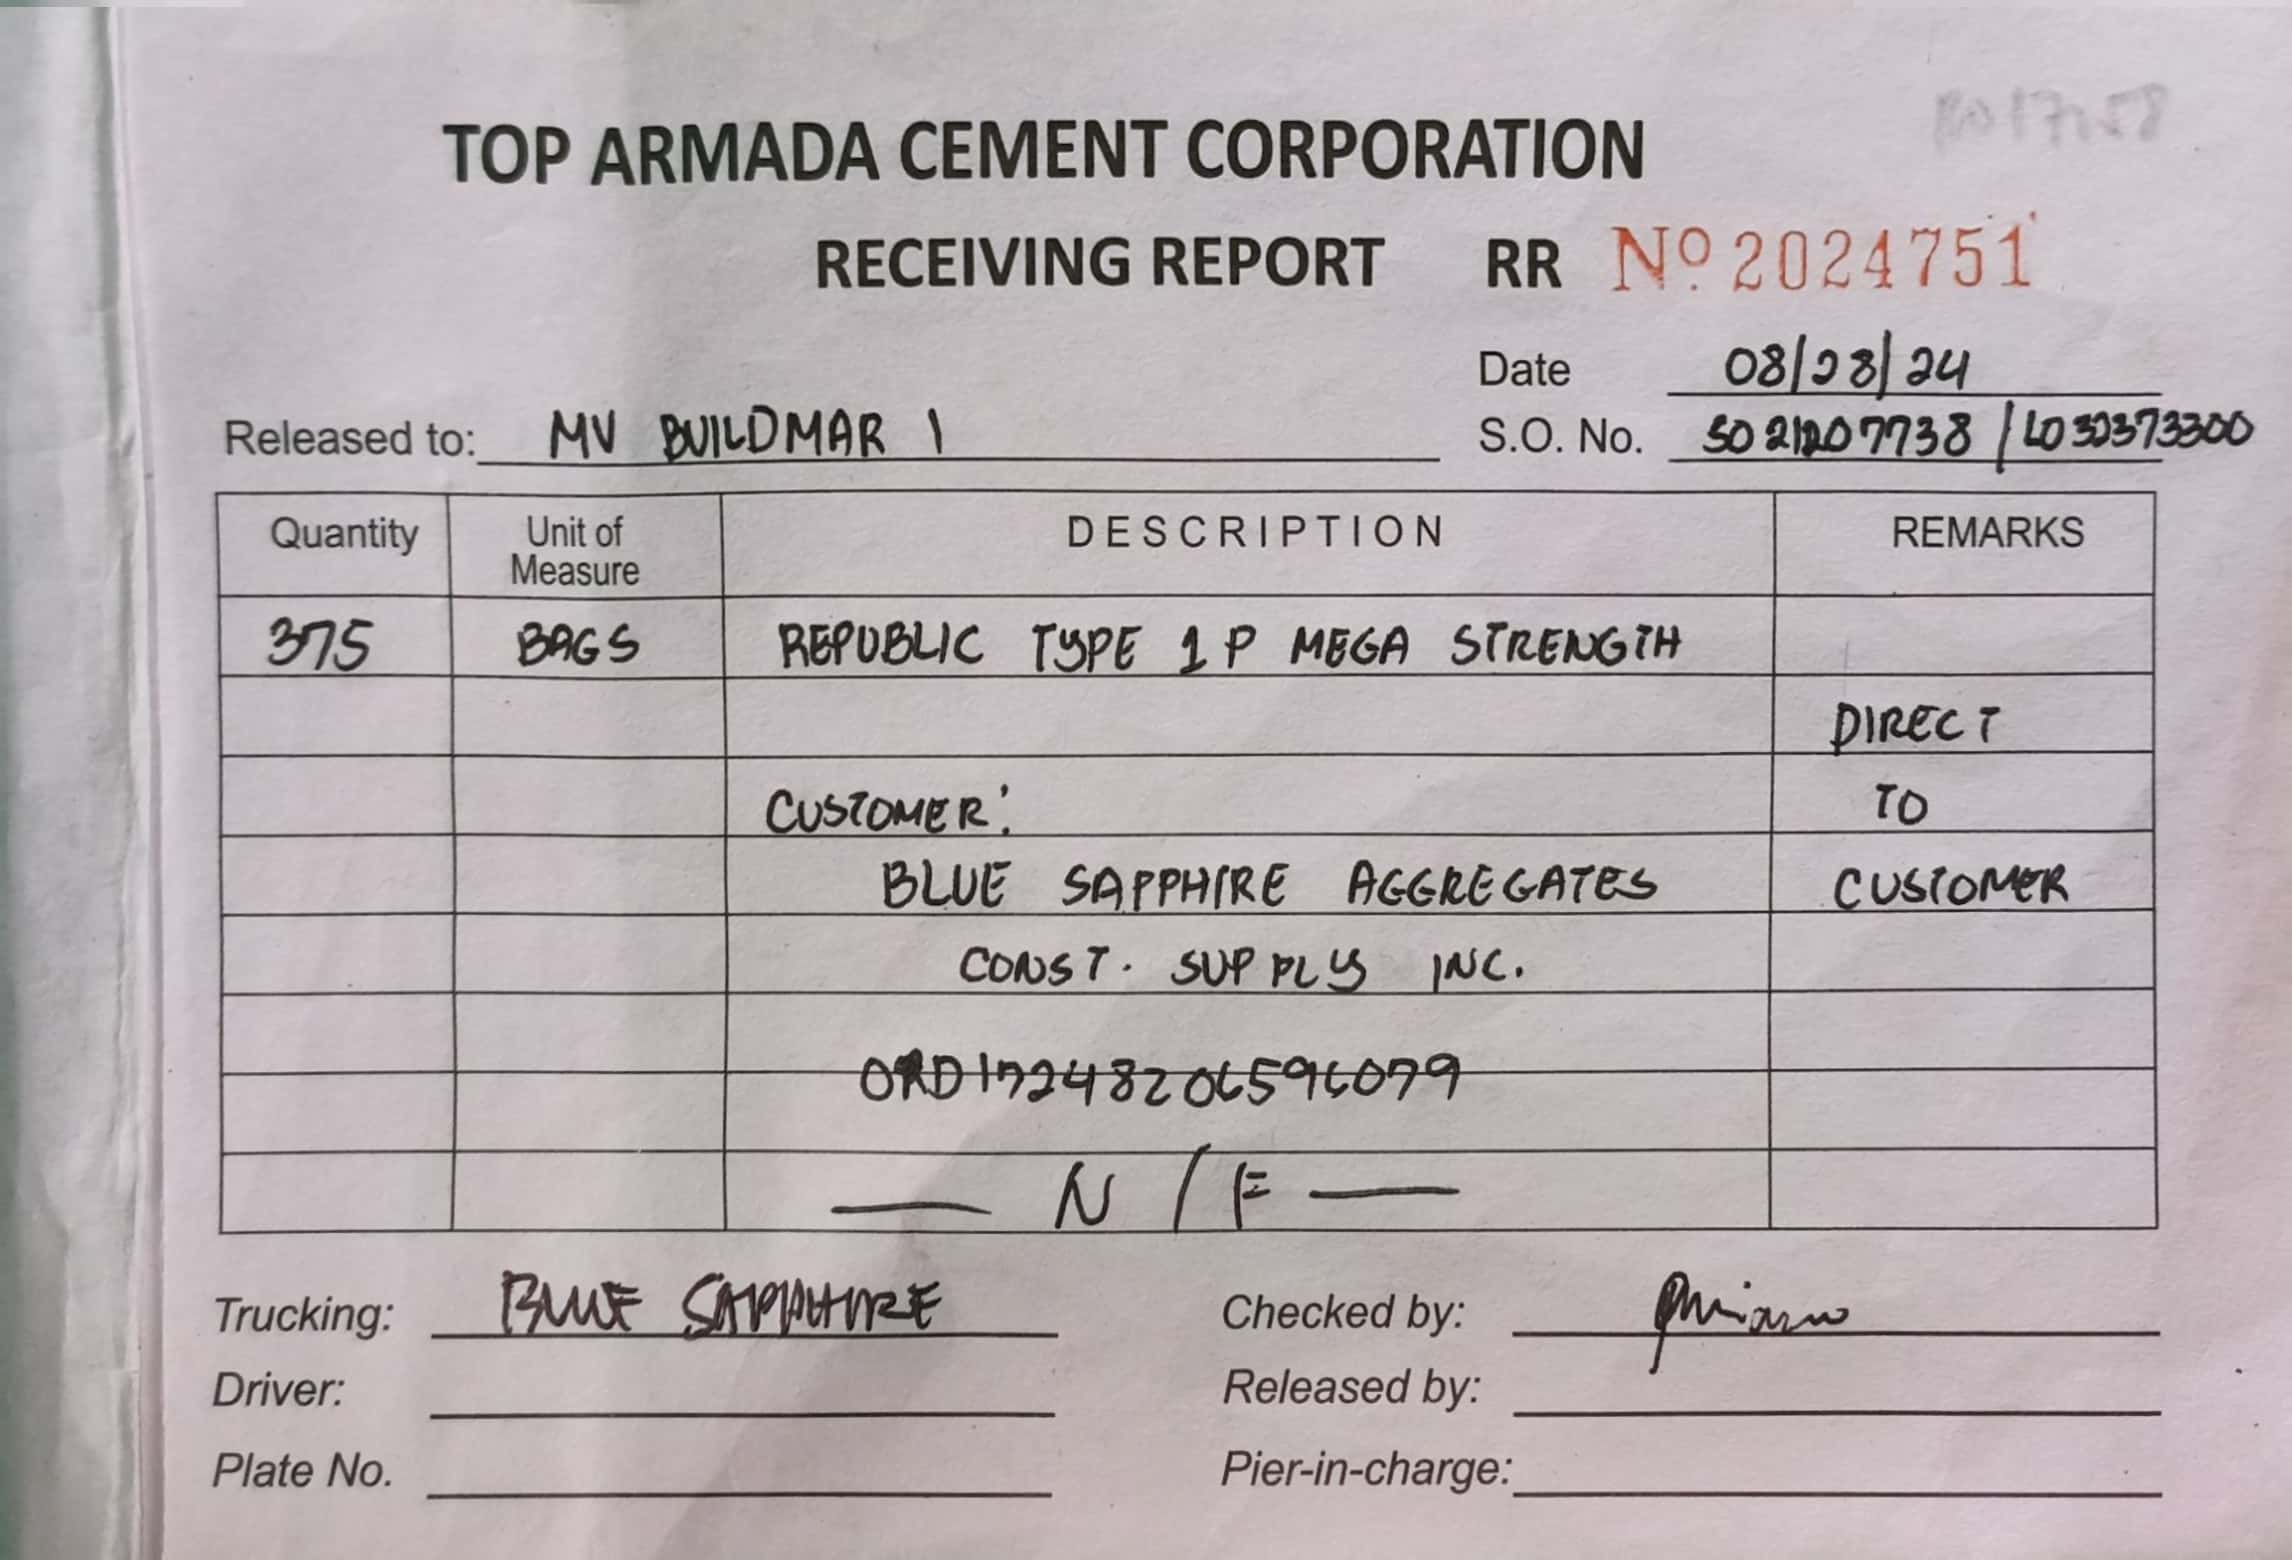 TOP ARMADA CEMENT CORPORATION
RECEIVING REPORT RR Nº 2024751
Date 08/28/24
Released to: MV BUILDMAR 1 S.O. No. SO21207738 / LO32373300
Quantity Unit of Measure DESCRIPTION REMARKS
375 BAGS REPUBLIC TYPE 1P MEGA STRENGTH
DIRECT
CUSTOMER: TO
BLUE SAPPHIRE AGGREGATES CUSTOMER
CONST. SUPPLY INC.
ORD17248206596079
— N/F —
Trucking: BLUE SAPPHIRE Checked by:
Driver: Released by:
Plate No. Pier-in-charge: